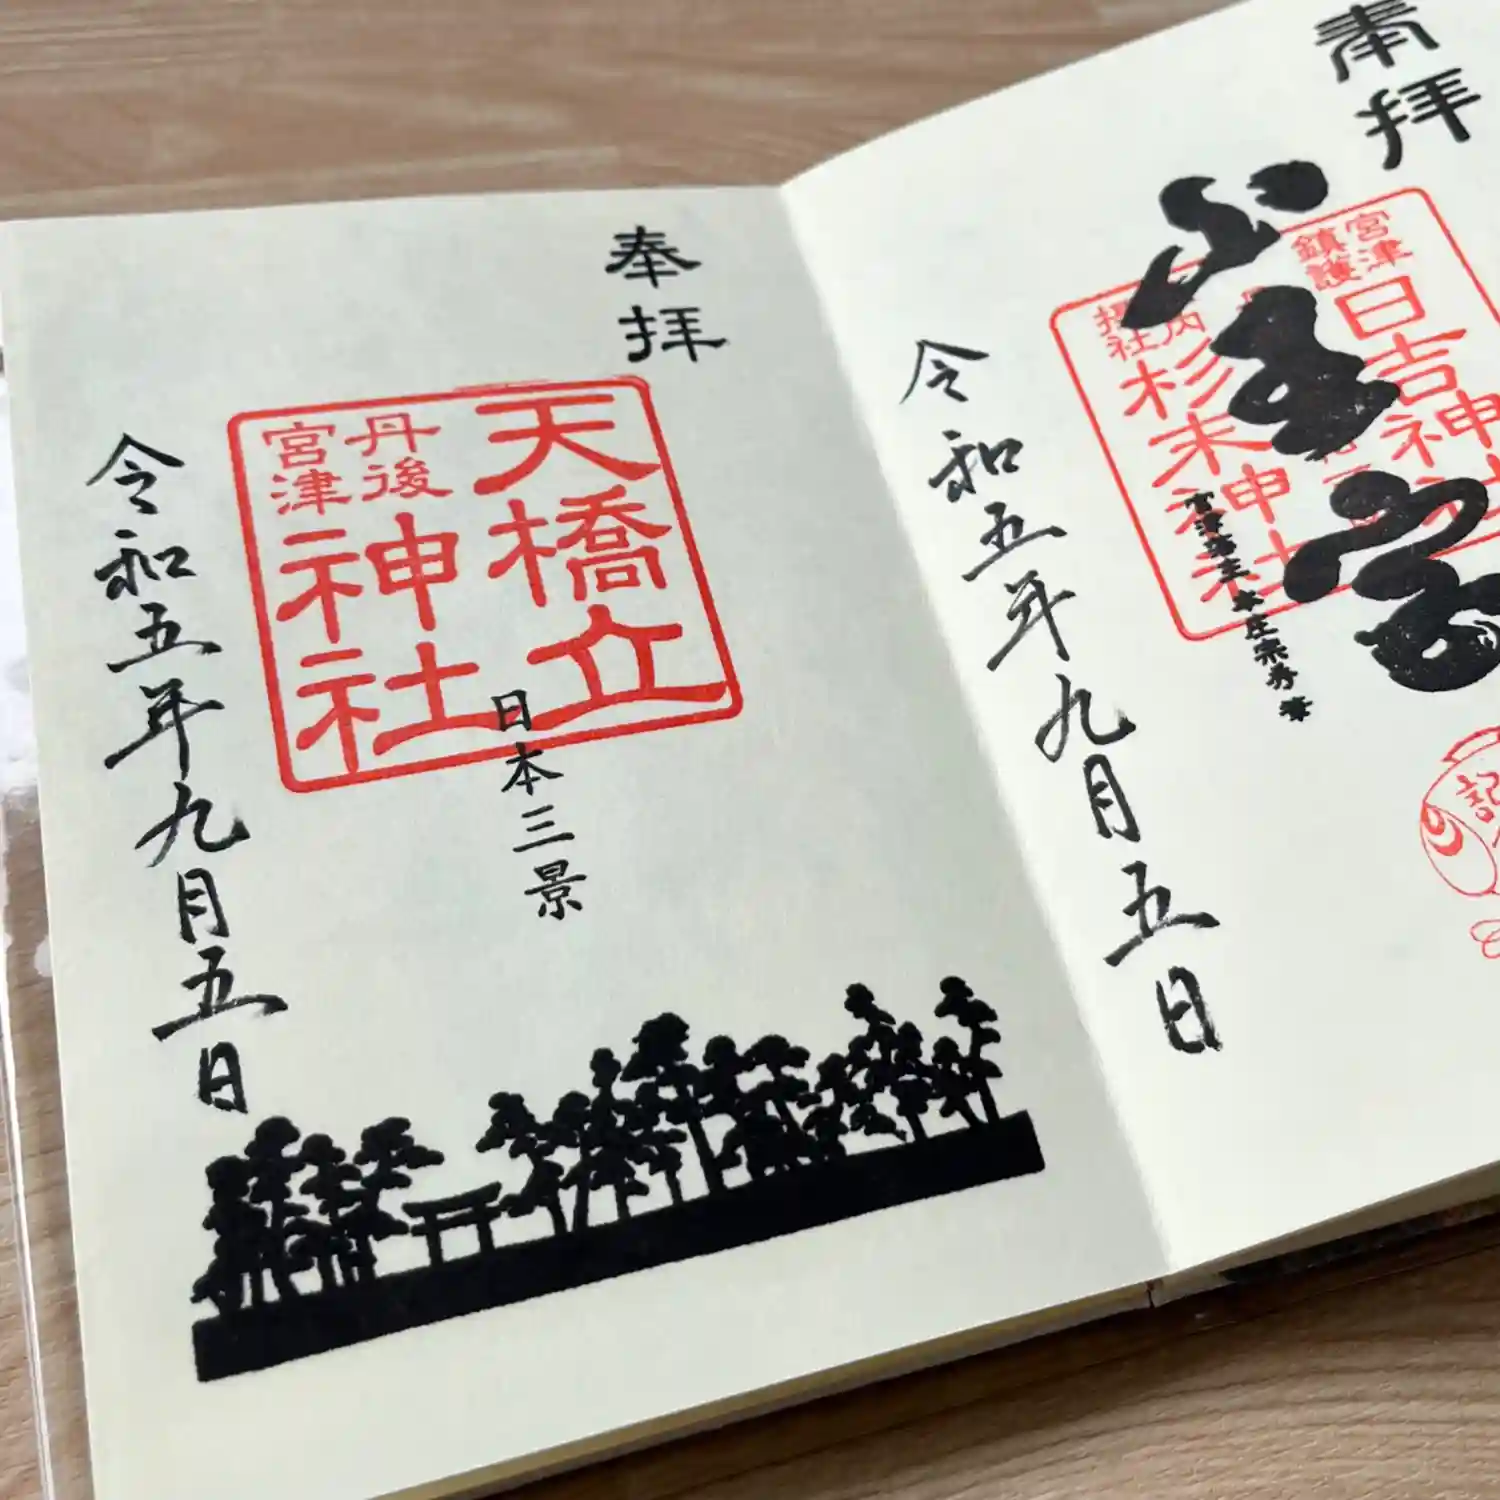 奉拝
日吉神社
宮津
鎮護
杉末神社
山王宮
宮津藩主 本庄宗秀 筆
令和五年九月五日
奉拝
天橋立
神社
丹後
宮津
日本三景
令和五年九月五日